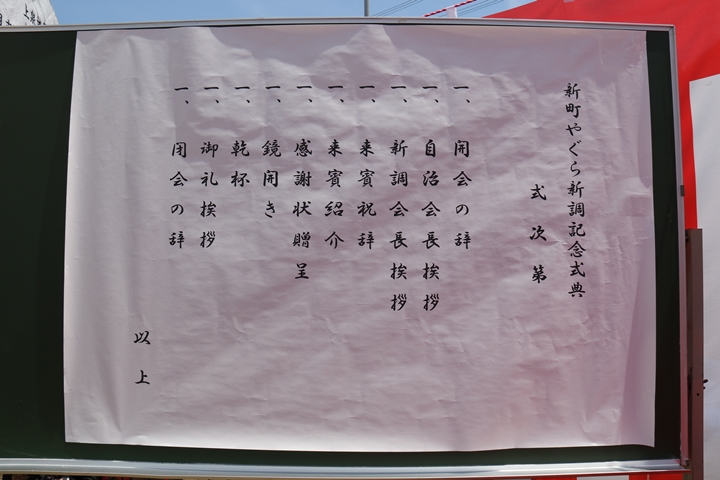 新町やぐら新調記念式典
式次第
一、開会の辞
一、自治会長挨拶
一、新調会長挨拶
一、来賓祝辞
一、来賓紹介
一、感謝状贈呈
一、鏡開き
一、乾杯
一、御礼挨拶
一、閉会の辞
以上